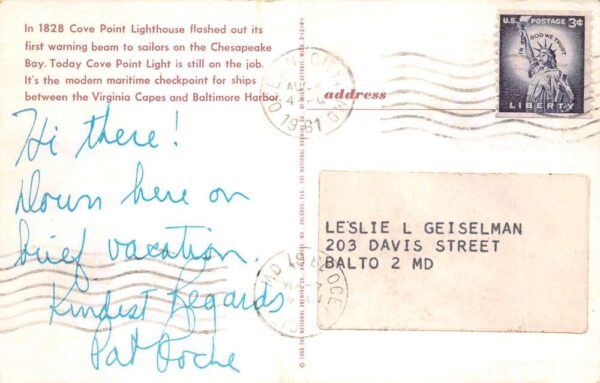 In 1828 Cove Point Lighthouse flashed out its
first warning beam to sailors on the Chesapeake
Bay. Today Cove Point Light is still on the job.
It's the modern maritime checkpoint for ships
between the Virginia Capes and Baltimore Harbor.
Hi there!
Down here on
brief vacation.
Kindest Regards
Pat Roche
address
1961
U.S. POSTAGE 3¢
IN GOD WE TRUST
LIBERTY
LESLIE L GEISELMAN
203 DAVIS STREET
BALTO 2 MD